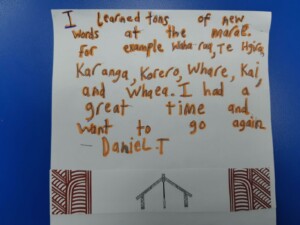 I learned tons of new
words at the marae.
for example Waha roa, Te Hgira,
Karanga, Korero, Whare, Kai,
and Whaea. I had a
great time and
want to go again
- Daniel.T